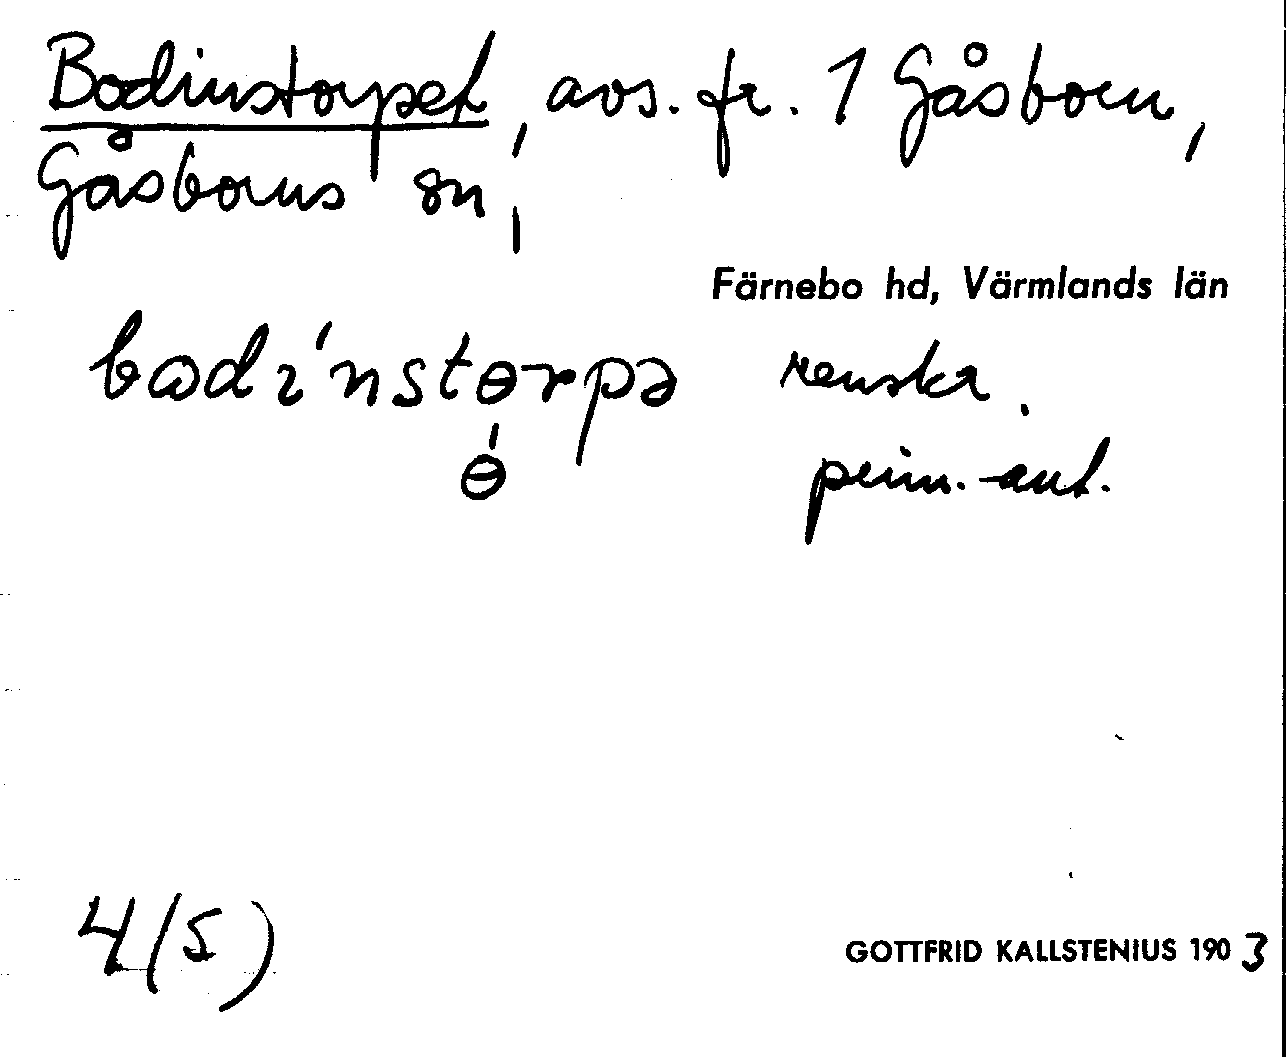 Bodinstorpet, avs. fr. 1 Gåsborn,
Gåsborns sn,
Färnebo hd, Värmlands län
bɷdı'nstɵrpə renskr.
ɵ́ prim.-ant.
4(5)
GOTTFRID KALLSTENIUS 1903